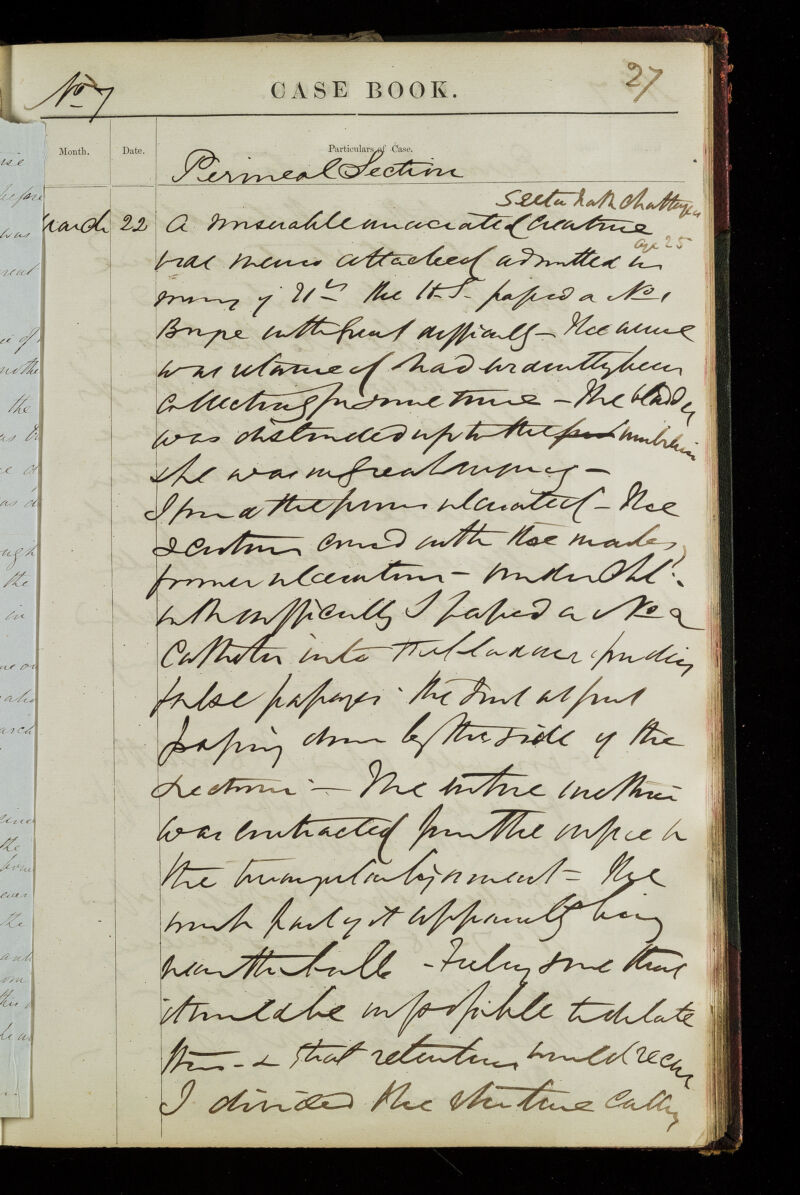 No 7
CASE BOOK.
27
Month.
Date.
Particulars of Case.
Perineal Section
Seeta Nath Chatterjea
age 25
March 22 A miserable emaciated creature
was admitted in
of 21st the H.S. passed a No 1
Bougie with great difficulty - The urine
was retained & had evidently been
collecting for some time - The bladder
was distended up to the umbilicus
she was in great agony -
I found the penis ulcerated - The
scrotum covered with the marks of
former ulcerations - under Chl:
with difficulty I passed a No 2
Catheter into the bladder, finding
false passages: the first at first
passing down by the side of the
rectum: - The entire urethra
was contracted from the orifice to
the triangular ligament - The
worst part of it apparently being
near the bulb - Feeling sure that
it would be impossible to dilate
this - & that retention would recur
I divided the stricture